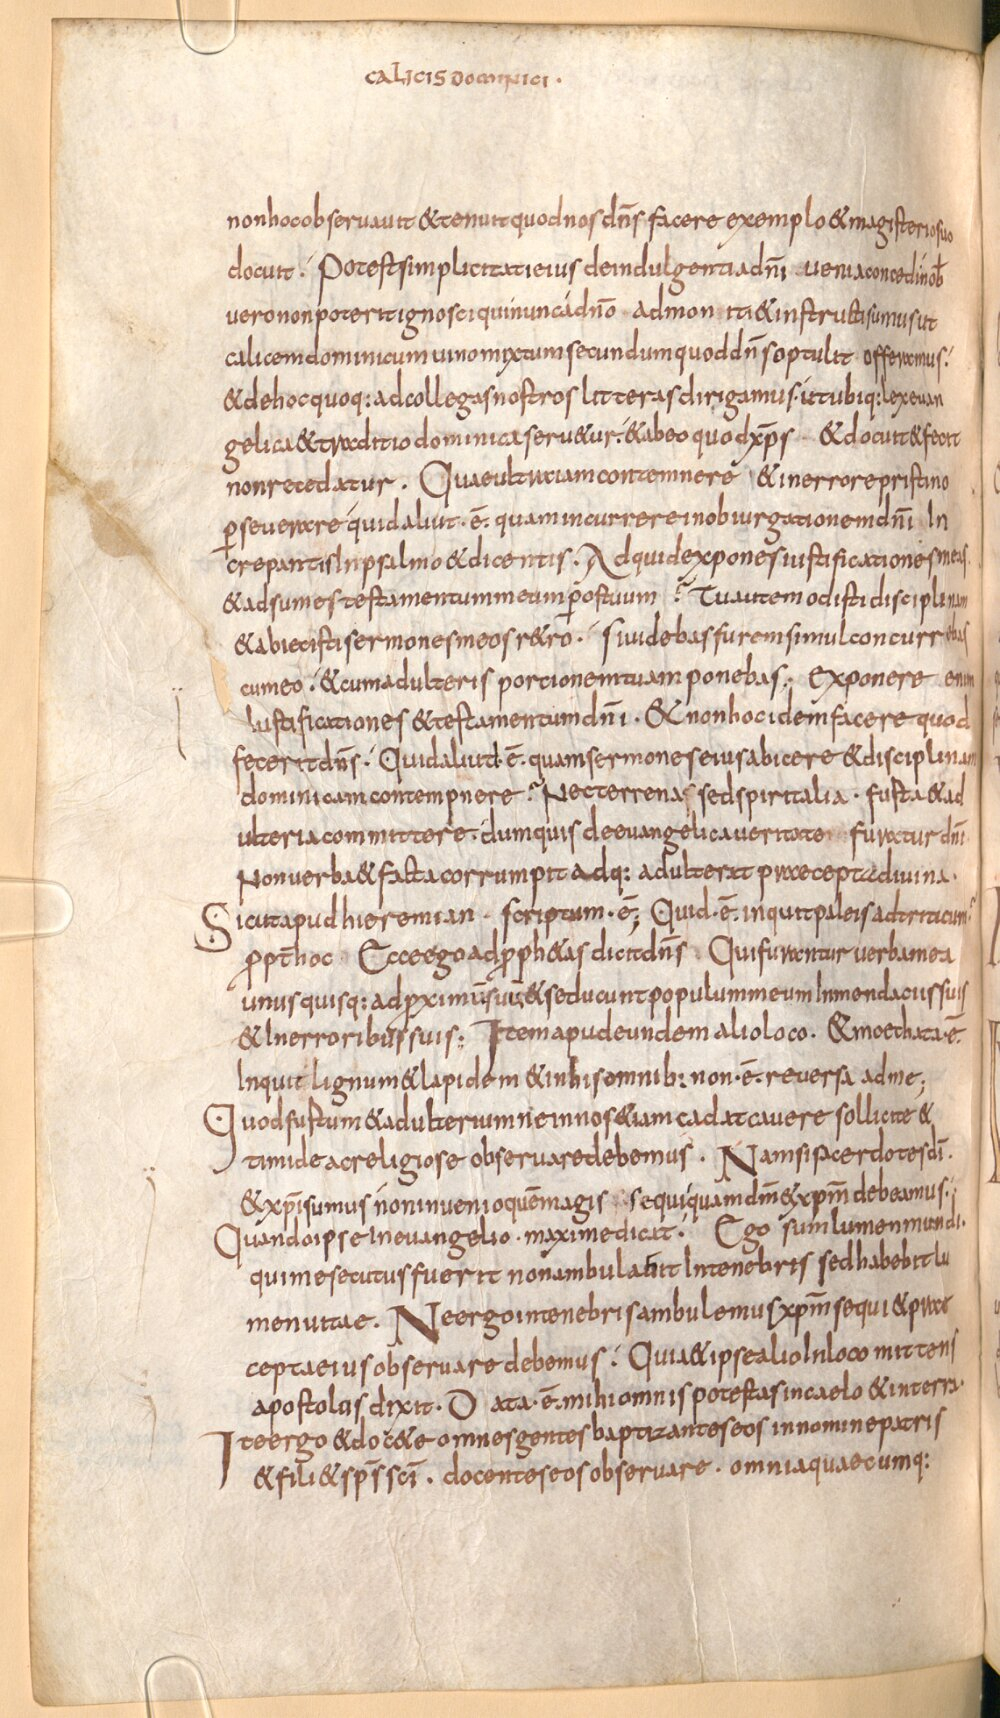 CALICIS DOMINICI ·
nonhocobseruauit &tenuit quodnos dñs facere exemplo &magisterio suo
docuit · Potest simplicitati eius deindulgentia dñi ueniaconcedi nob
uero nonpoterit ignosci quinunc a dño admoniti &instructi sumus ut
calicem dominicum uinomixtum secundum quod dñs optulit offeramus ·
&dehoc quoq: adcollegas nostros litteras dirigamus · ut ubiq: lex euan
gelica &traditio dominica seru&ur · &abeo quod xp̄s &docuit &fecit
nonrecedatur . Quae ultra iam contemnere &inerrore pristino
p̱seuerare quid aliut · ē · quam incurrere inobiurgationem dñi In
crepantis Inpsalmo &dicentis . Ad quid expones iustificationes meas
&adsumes testamentum meum p̱ os tuum ? Tu autem odisti disciplinam
&abiecisti sermones meos r&ro · Si uidebas furem simul concurrebas
cumeo · &cum adulteris portionem tuam ponebas ; exponere enim
Iustificationes &testamentum dñi · &non hoc idem facere quod
fecerit dñs · Quid aliud · ē · quam sermones eius abicere &disciplinam
dominicam contempnere ? Nec terrena sed spiritalia · furta &ad
ulteria committere · dum quis deeuangelica ueritate furatur dñi
Non uerba &facta corrumpit adq: adulterat praecepta diuina ·
Sicut apud hieremian · scriptum · ē ; Quid · ē · inquit paleis ad triticum ?
ꝓpt̄ hoc Ecce ego ad ꝓph&as dicit dñs Qui furantur uerba mea
unus quisq: a dꝓximū suū &seducunt populum meum Inmendaciis suis
&Inerroribus suis ; Item apud eundem alio loco · &moechata · ē ·
Inquit lignum &lapidem &inhis omnib: non · ē · reuersa adme ;
Quod furtum &adulterium ne innos &iam cadat cauere sollicite &
timide ac religiose obseruare debemus . Nam si sacerdotes dī ·
&xp̄i sumus non inuenio quē magis sequi quam dm̄ &xp̄m debeamus ·
Quando ipse Ineuangelio · maxime dicat · Ego sum lumen mundi ·
qui me secutus fuerit non ambulabit Intenebris sed habebit lu
men uitae . Ne ergo intenebris ambulemus xp̄m sequi &prae
cepta eius obseruare debemus · Quia &ipse alio Inloco mittens
apostolus dixit · Data · ē · mihi omnis potestas in caelo &in terra ·
Ite ergo &doc&e omnes gentes baptizantes eos in nomine patris
&fili &sp̄s sc̄i . docentes eos obseruare · omnia quaecumq: